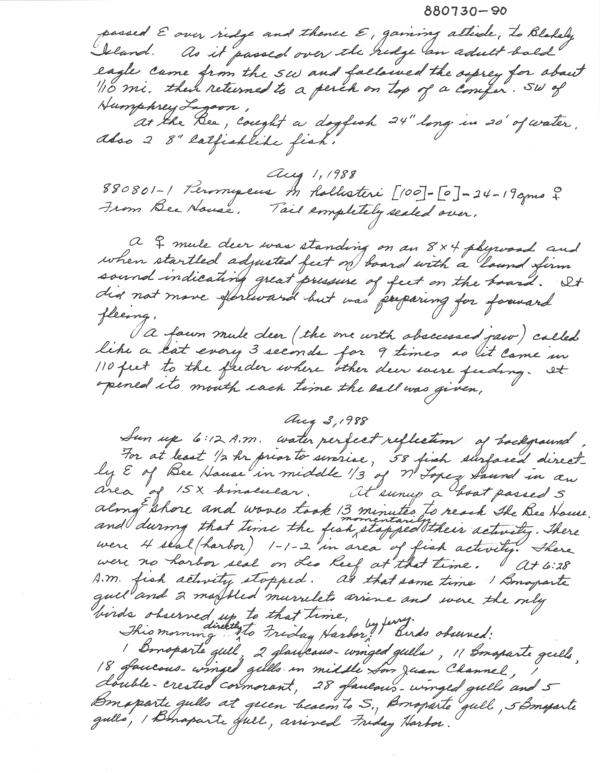 880730-90
passed E over ridge and thence E, gaining altide, to Blakely
Island. As it passed over the ridge an adult bald
eagle came from the SW and followed the osprey for about
1/10 mi. then returned to a perch on top of a conifer. SW of
Humphrey Lagoon.
At the Bee, caught a dogfish 24" long in 20' of water.
Also 2 8" catfishlike fish.
Aug 1, 1988
880801-1 Peromyscus m hollisteri [100]-[0]-24-19gms ♀
From Bee House. Tail completely scaled over.
A ♀ mule deer was standing on an 8x4 plywood and
when startled adjusted feet on board with a loud firm
sound indicating great pressure of feet on the board. It
did not move forward but was preparing for forward
fleeing.
A fawn mule deer (the one with obscessed jaw) called
like a cat every 3 seconds for 9 times as it came in
110 feet to the feeder where other deer were feeding. It
opened its mouth each time the call was given.
Aug 3, 1988
Sun up 6:12 A.M. water perfect reflection of background.
For at least 1/2 hr prior to sunrise, 58 fish surfaced direct-
ly E of Bee House in middle 1/3 of N Lopez Sound in an
area of 15X binocular. At sunup a boat passed S
along E shore and waves took 13 minutes to reach The Bee House.
and during that time the fish momentarily stopped their activity. There
were 4 seal (harbor) 1-1-2 in area of fish activity. There
were no harbor seal on Leo Reef at that time. At 6:28
A.M. fish activity stopped. At that same time 1 Bonaparte
gull and 2 marbled murrelets arrive and were the only
birds observed up to that time.
This morning directly to Friday Harbor by ferry. Birds observed:
1 Bonaparte gull, 2 glaucous-winged gulls, 11 Bonaparte gulls,
18 glaucous-winged gulls in middle San Juan Channel, 1
double-crested cormorant, 28 glaucous-winged gulls and 5
Bonaparte gulls at green beacon to S., Bonaparte gull, 5 Bonaparte
gulls, 1 Bonaparte gull, arrived Friday Harbor.